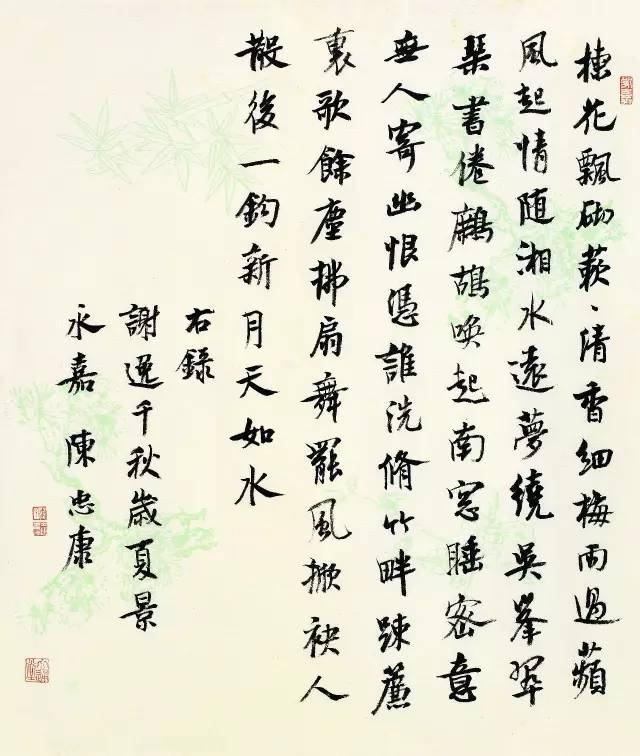 楝花飄砌蔌〻清香細梅雨過蘋
風起情随湘水遠夢繞吳峯翠
琹書倦鷓鴣喚起南窓睡密意
無人寄幽恨憑誰洗脩竹畔踈簾
裏歌餘塵拂扇舞罷風掀袂人
散後一鈎新月天如水
右錄
謝逸千秋歲夏景
永嘉陳忠康